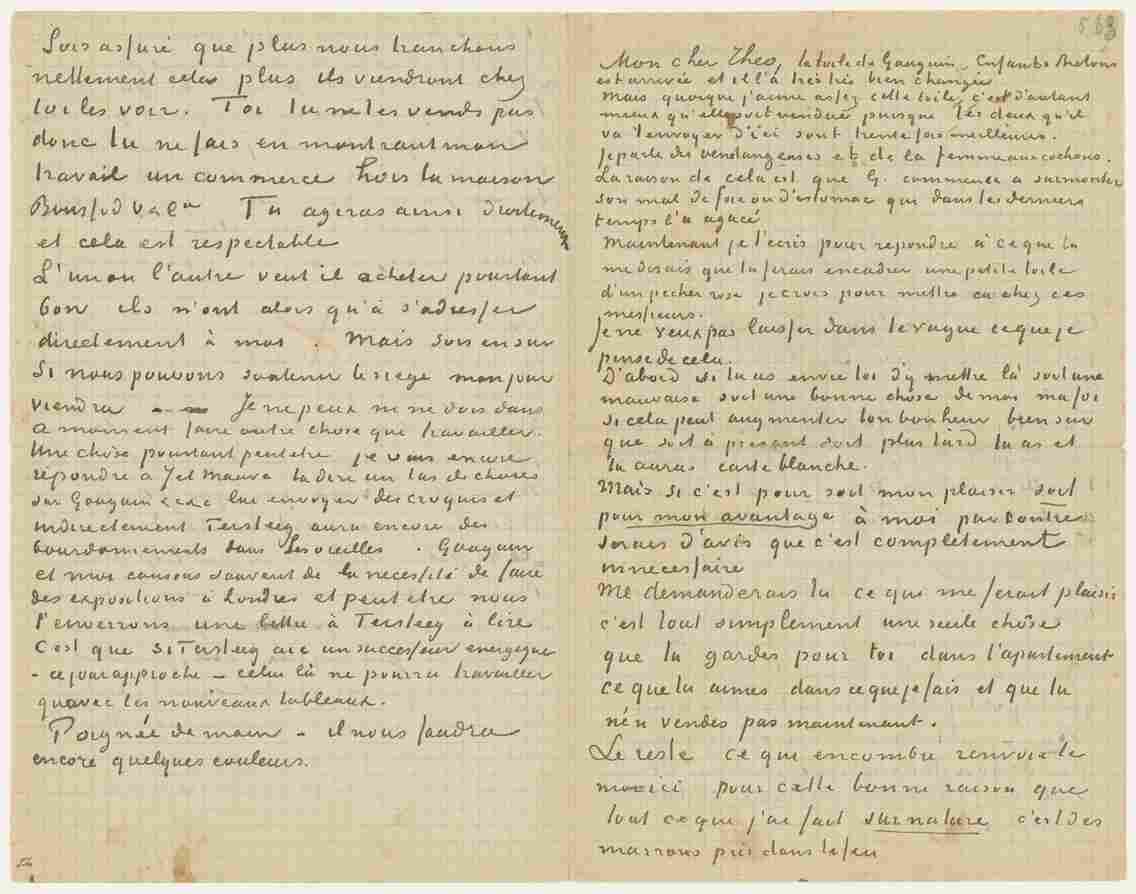 Sois assuré que plus nous tranchons
nettement cela plus ils viendront chez
toi les voir. Toi tu ne les vends pas
donc tu ne fais en montrant mon
travail un commerce hors la maison
Boussod V & Cie Tu agiras ainsi droitement
et cela est respectable
L'un ou l'autre veut il acheter pourtant
bon ils n'ont alors qu'à s'adresser
directement à moi. Mais sois en sûr
Si nous pouvons soutenir le siege mon jour
viendra Je ne peux ni ne dois dans
ce moment faire autre chose que travailler.
Une chose pourtant peut etre je vais encore
répondre à Jet Mauve la dire un tas de choses
sur Gauguin &c &c lui envoyer des croquis et
indirectement Tersteeg aura encore des
bourdonnements dans les oreilles. Gauguin
et moi causons souvent de la necessité de faire
des expositions à Londres et peut etre nous
t'enverrons une lettre à Tersteeg à lire
C'est que si Tersteeg aie un successeur energique
- ce jour approche - celui là ne pourra travailler
qu'avec les nouveaux tableaux.
Poignée de main - il nous faudra
encore quelques couleurs.
563
Mon cher Theo, la toile de Gauguin, Enfants Bretons
est arrivée et il l'a très très bien changée
Mais quoique j'aime assez cette toile c'est d'autant
mieux qu'elle soit vendue puisque les deux qu'il
va t'envoyer d'ici sont trente fois meilleurs.
Je parle des vendangeuses et de la femme aux cochons.
La raison de cela est que G. commence a surmonter
son mal de foie ou d'estomac qui dans les derniers
temps l'a agacé
Maintenant je t'ecris pour repondre à ce que tu
me disais que tu ferais encadrer une petite toile
d'un pecher rose je crois pour mettre ca chez ces
messieurs.
Je ne veux pas laisser dans le vague ce que je
pense de cela.
D'abord si tu as envie toi d'y mettre là soit une
mauvaise soit une bonne chose de moi ma foi
si cela peut augmenter ton bonheur bien sur
que soit à present soit plus tard tu as et
tu auras carte blanche.
Mais si c'est pour soit mon plaisir soit
pour mon avantage à moi par contre
serais d'avis que c'est complètement
innecessaire
Me demanderais tu ce qui me ferait plaisir
c'est tout simplement une seule chose
que tu gardes pour toi dans l'apartement
ce que tu aimes dans ce que je fais et que tu
n'en vendes pas maintenant.
Le reste ce qui encombre renvoie le
moi ici pour cette bonne raison que
tout ce que j'ai fait sur nature c'est des
marrons pris dans le feu